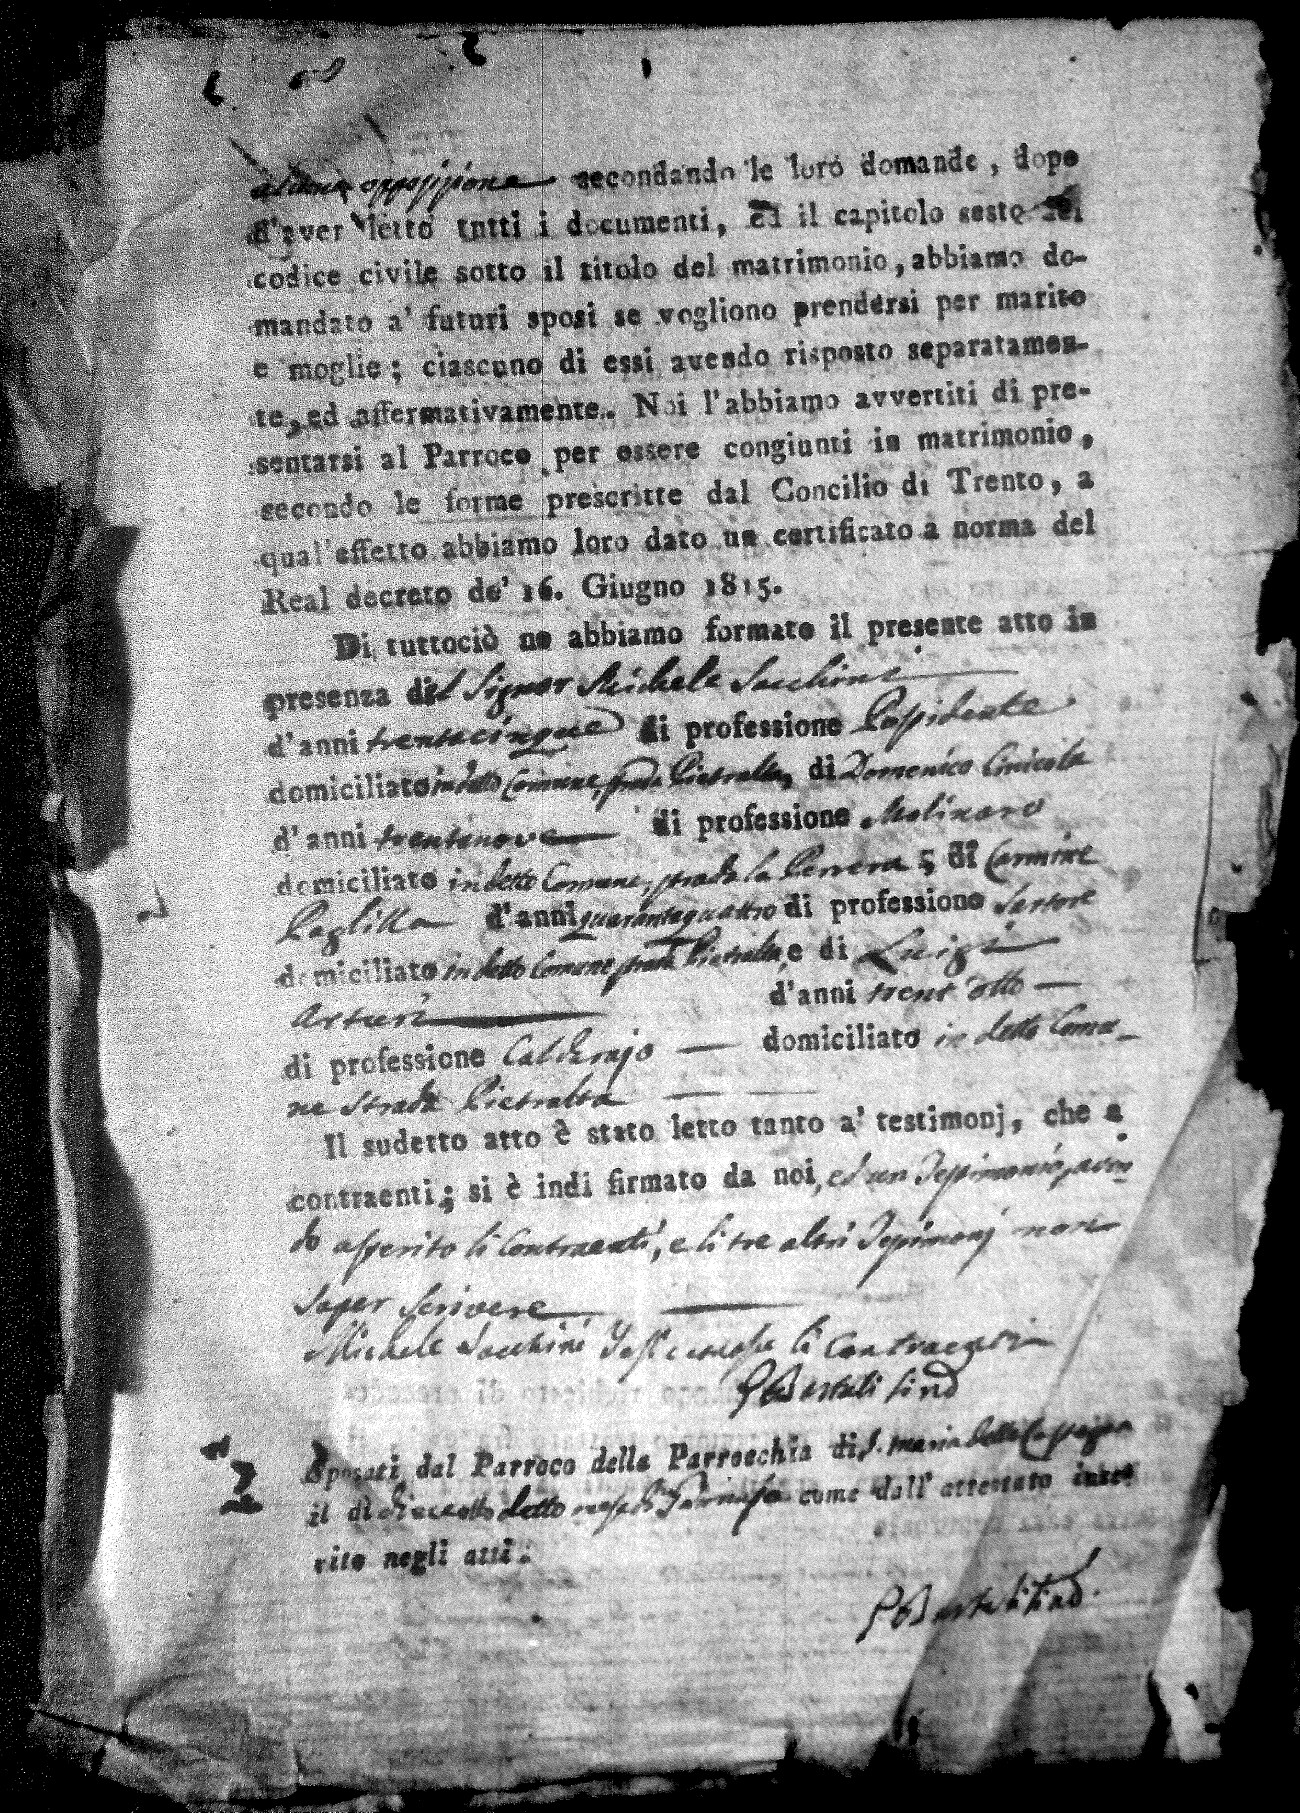 alcuna opposizione secondando le loro domande, dopo
d'aver letto tutti i documenti, ed il capitolo sesto del
codice civile sotto il titolo del matrimonio, abbiamo do-
mandato a' futuri sposi se vogliono prendersi per marito
e moglie; ciascuno di essi avendo risposto separatamen-
te, ed affermativamente. Noi l'abbiamo avvertiti di pre-
sentarsi al Parroco per essere congiunti in matrimonio,
secondo le forme prescritte dal Concilio di Trento, a
qual'effetto abbiamo loro dato un certificato a norma del
Real decreto de' 16. Giugno 1815.
Di tuttociò ne abbiamo formato il presente atto in
presenza del Signor Michele Sacchini
d'anni trentacinque di professione Possidente
domiciliato in detto Comune, strada Pietralta, di Domenico
d'anni trentanove di professione Molinaro
domiciliato in detto Comune, strada la; di Carmine
Paglilla d'anni quarantaquattro di professione Sartore
domiciliato in detto Comune strada Pietralta, e di Luigi
Arturi d'anni trent'otto
di professione Calderajo domiciliato in detto Comu-
ne strada Pietralta
Il sudetto atto è stato letto tanto a' testimonj, che a
contraenti; si è indi firmato da noi, ed un Testimonio, aven-
do asserito li Contraenti, e li tre altri Testimonj non
saper scrivere
Michele Sacchini li Contraenti
Bartuli Sind
Sposati dal Parroco della Parrocchia di S. Maria della
il di dieceotto detto mese di come dall' attestato inse-
rito negli atti.
Bartuli Sind.